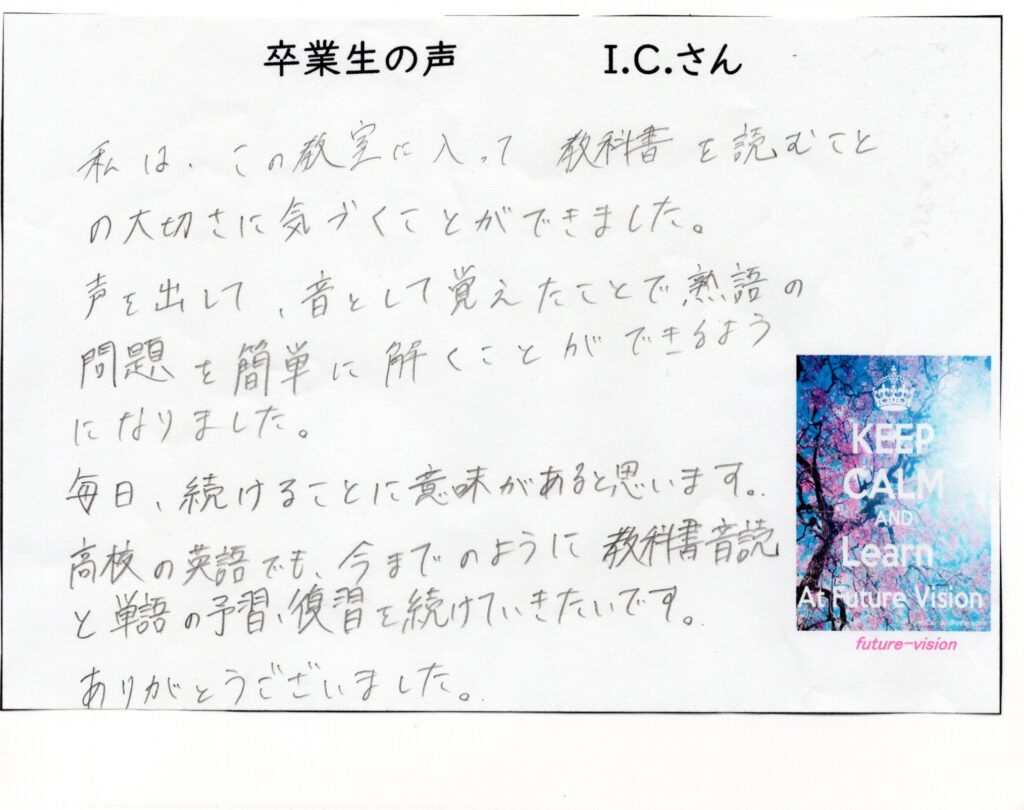 卒業生の声 I.C.さん
私は、この教室に入って 教科書を読むこと
の大切さに気づくことができました。
声を出して、音として覚えたことで熟語の
問題を簡単に解くことができるよう
になりました。
毎日、続けることに意味があると思います。
高校の英語でも、今までのように 教科書音読
と単語の予習、復習を続けていきたいです。
ありがとうございました。
KEEP
CALM
AND
Learn
At Future Vision
future-vision